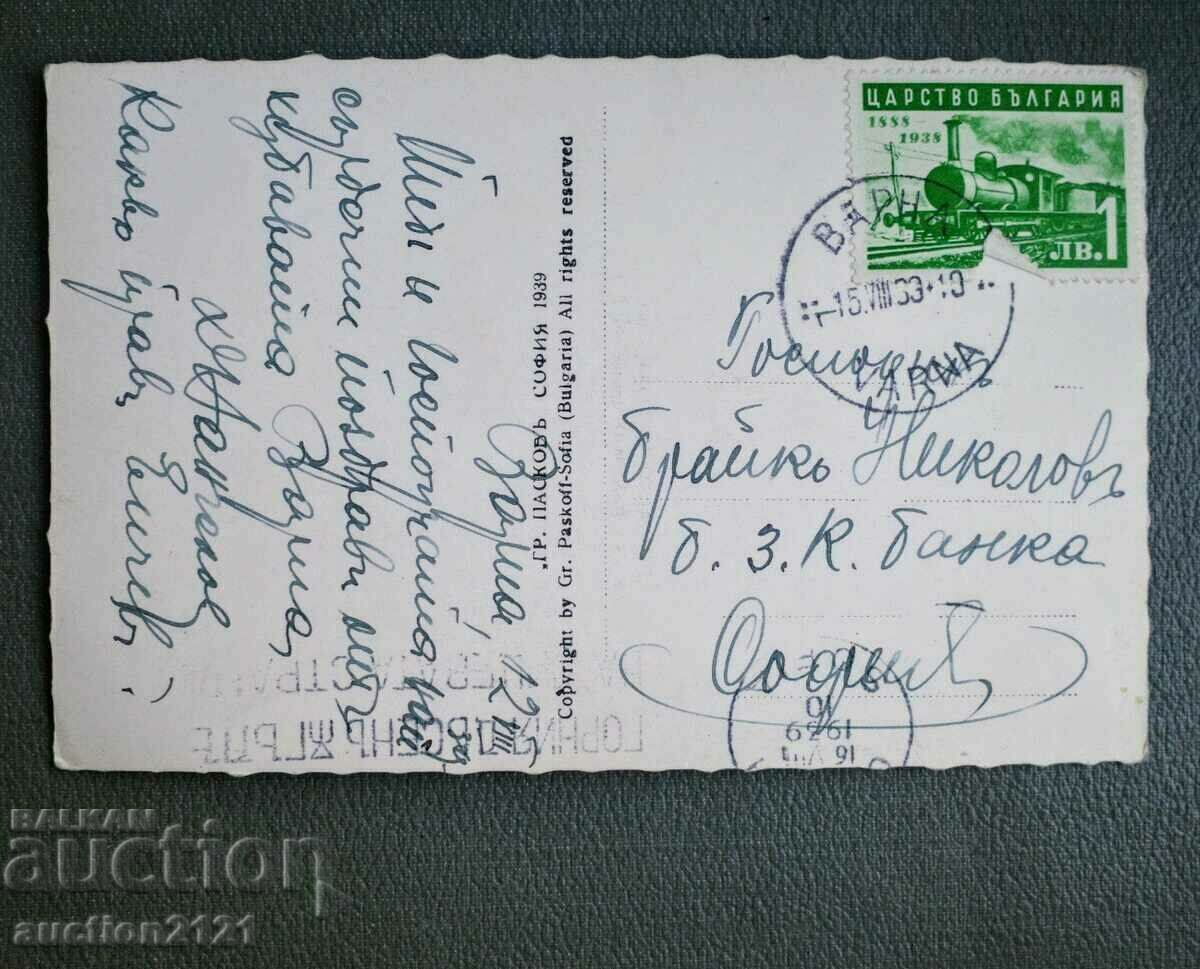 ЦАРСТВО БЪЛГАРИЯ
1888-
1938
ЛВ.1
ВАРНА
15.VIII 39-10
VARNA
Господинъ
Брайко Николовъ
Б. З. К. Банка
София
16 VIII
1939
10
„ГР. ПАСКОВЪ СОФИЯ 1939
Copyright by Gr. Paskoff-Sofia (Bulgaria) All rights reserved
Варна, 12 VIII
Мили и
сърдечни поздрави из
хубавата Варна,
Какво прави
BALKAN
auction
auction2121